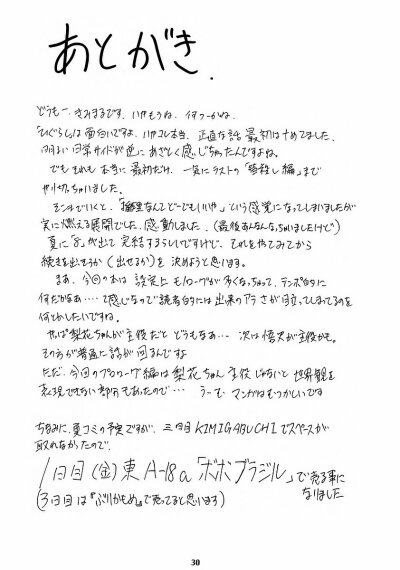 あとがき.
どうも一、きみまるです。いやもうね、何つーかね、
「ひぐらし」は面白いですよ、いやコレ本当。正直な話 最初はナメてました、
明るい日常サイドが逆に あざとく感じちゃったんですよね。
でも それも本当に最初だけ。一気にラストの「皆殺し編」まで
やり切っちゃいました。
という感覚になってしまいましたが
実に燃える展開でした、感動しました。(最後あんなんなっちゃいましたけど)
夏に「8」が出て 完結するらしいですけど、それをやってみてから
続きを出そうか(出せるか)を 決めようと思います。
まあ、今回の本は 設定上 モノローグが多くなっちゃって、テンポ的に
何だかなあ‥‥って感じなので読者的には 出来のアラさが目立ってしまってるのを
何とかしたいですね。
やっぱ梨花ちゃんが主役だと どうもなあ‥‥ 次は悟史が主役かも。
その方が普通に話が回るんですよ
ただ、今回のプロローグ編は梨花ちゃん主役じゃないと世界観を
表現できない部分もあったので‥‥ うーむ、マンガはむつかしいです
ちなみに、夏コミの予定ですが、三日目 KIMIGABUCHIでスペースが
取れなかったので、
1日目(金)東A-18a「ボボブラジル」で売る事に
なりました
(3日目は『ぶりかもめ』で売ってると思います)
30